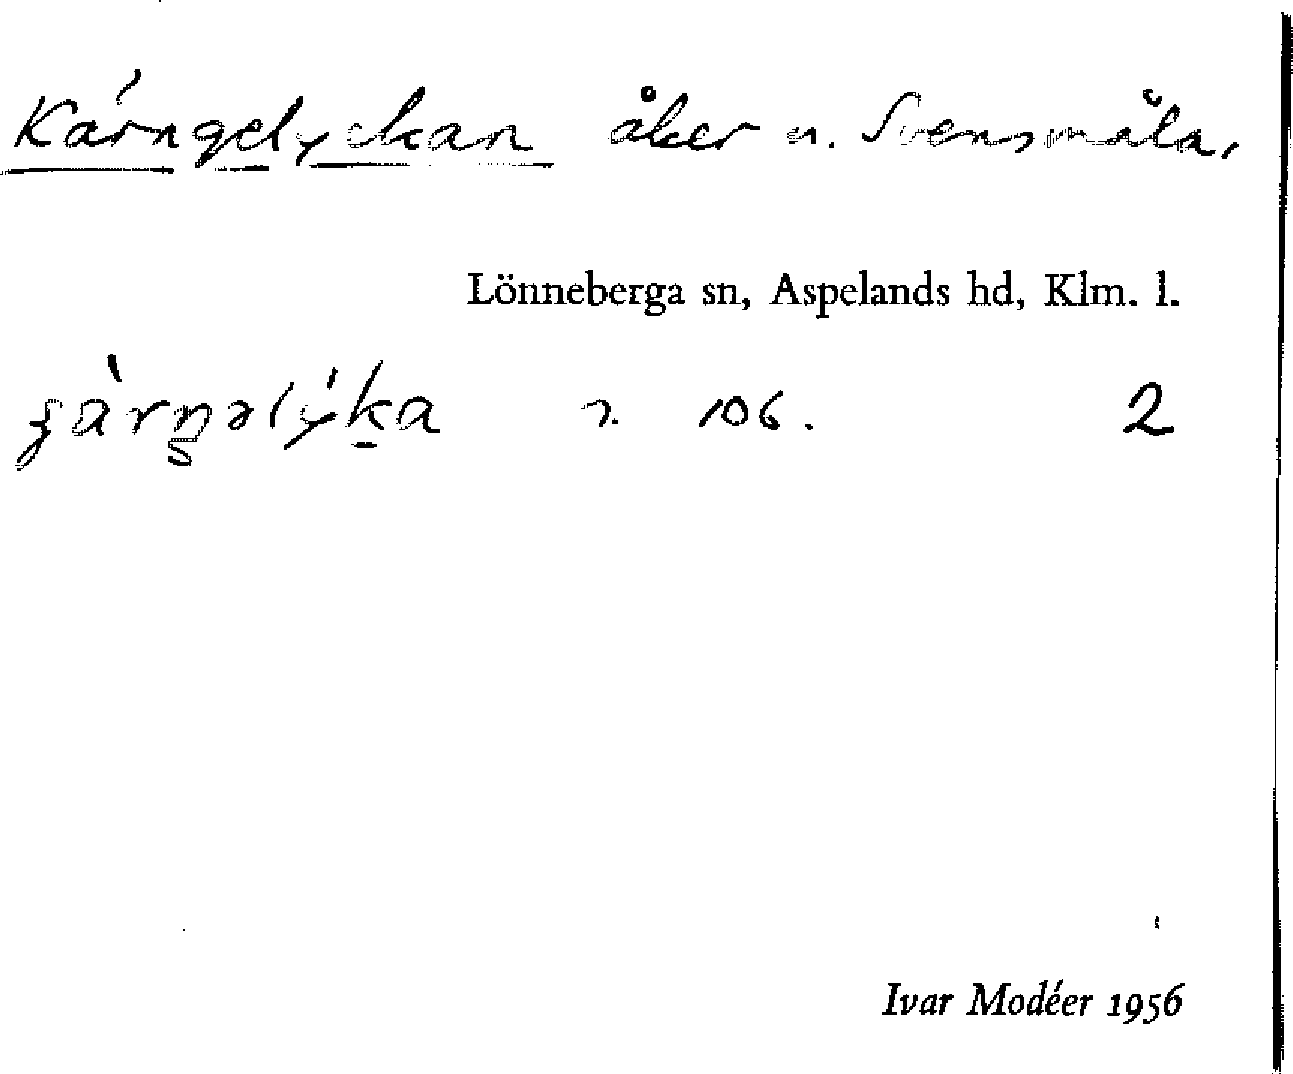 Kärngelyckan åker u. Svensmåla,
Lönneberga sn, Aspelands hd, Klm. l.
106. 2
Ivar Modéer 1956